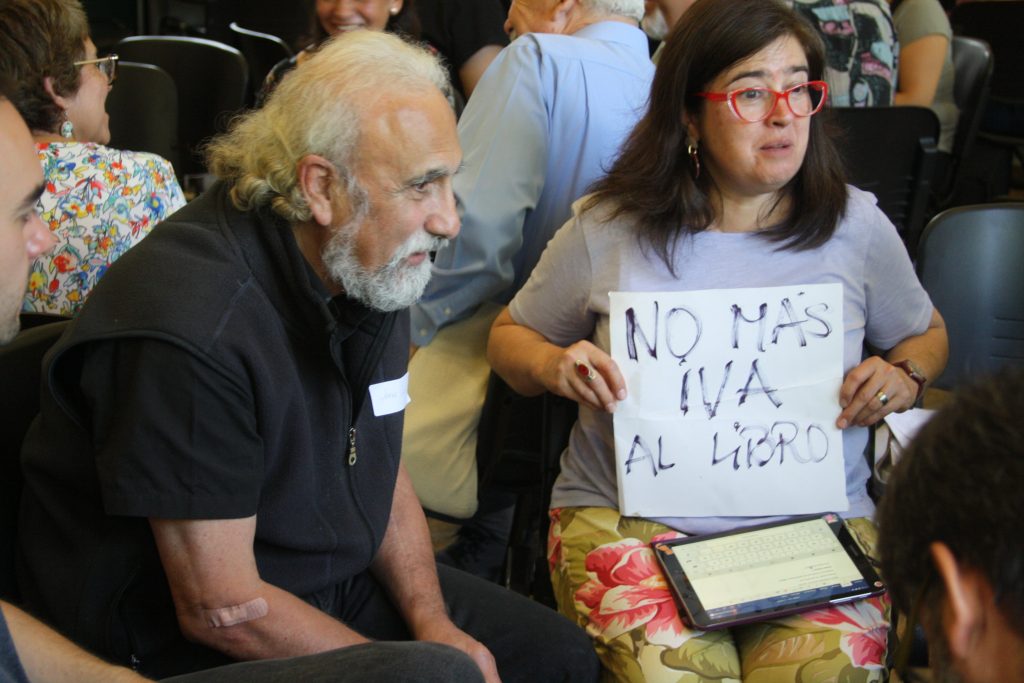 NO MÁS
IVA
AL LIBRO